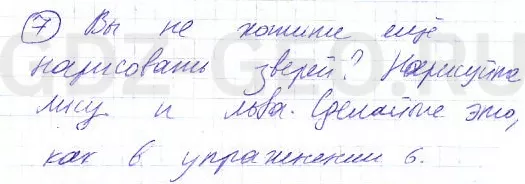 7 Вы не хотите ещё
нарисовать зверей? Нарисуйте
лису и льва. Сделайте это,
как в упражнении 6.